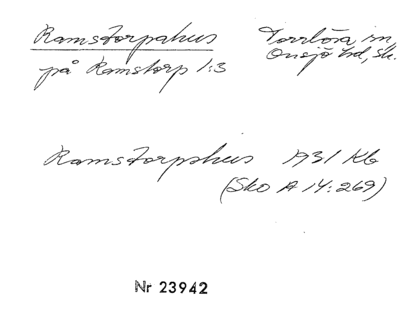 Ramstorpahus
Torrlösa sn
på Ramstorp 1:3
Onsjö hd, Sk.
Ramstorpshus 1931 Kb
(Sko A 14:269)
Nr 23942